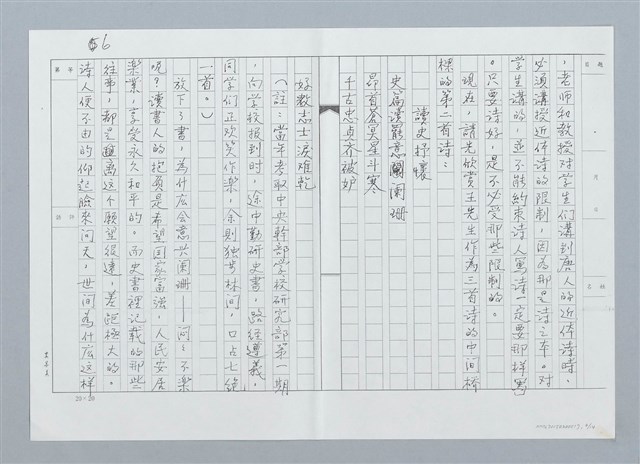 6
，老师和教授对学生们讲到唐人的近体诗时，
必须讲授近体诗的限制，因为那是诗之本。对
学生讲的，並不能约束诗人写诗一定要那样写
。只要诗好，是不必受那些限制的。
现在，請先欣赏王先生作为三首诗的中间桥
樑的第二首诗：
讀史抒懷
史篇讀罷意闌珊
昂首蒼冥星斗寒
千古忠貞齐被妒
好教志士淚难乾
（註：當年考取中央幹部学校研究部第一期
，向学校报到时，途中勤研史書，路经遵義，
同学们正欢笑作樂，余則独步林间，口占七絕
一首。）
放下了書，為什広会意兴阑珊——闷：不樂
呢？讀書人的抱負是希望国家富强，人民安居
樂業，享受永久和平的。而史書裡记載的那些
往事，都是離这个願望很遠，差距極大的。
诗人便不由的仰起臉來问天，世间為什広这样
20×20